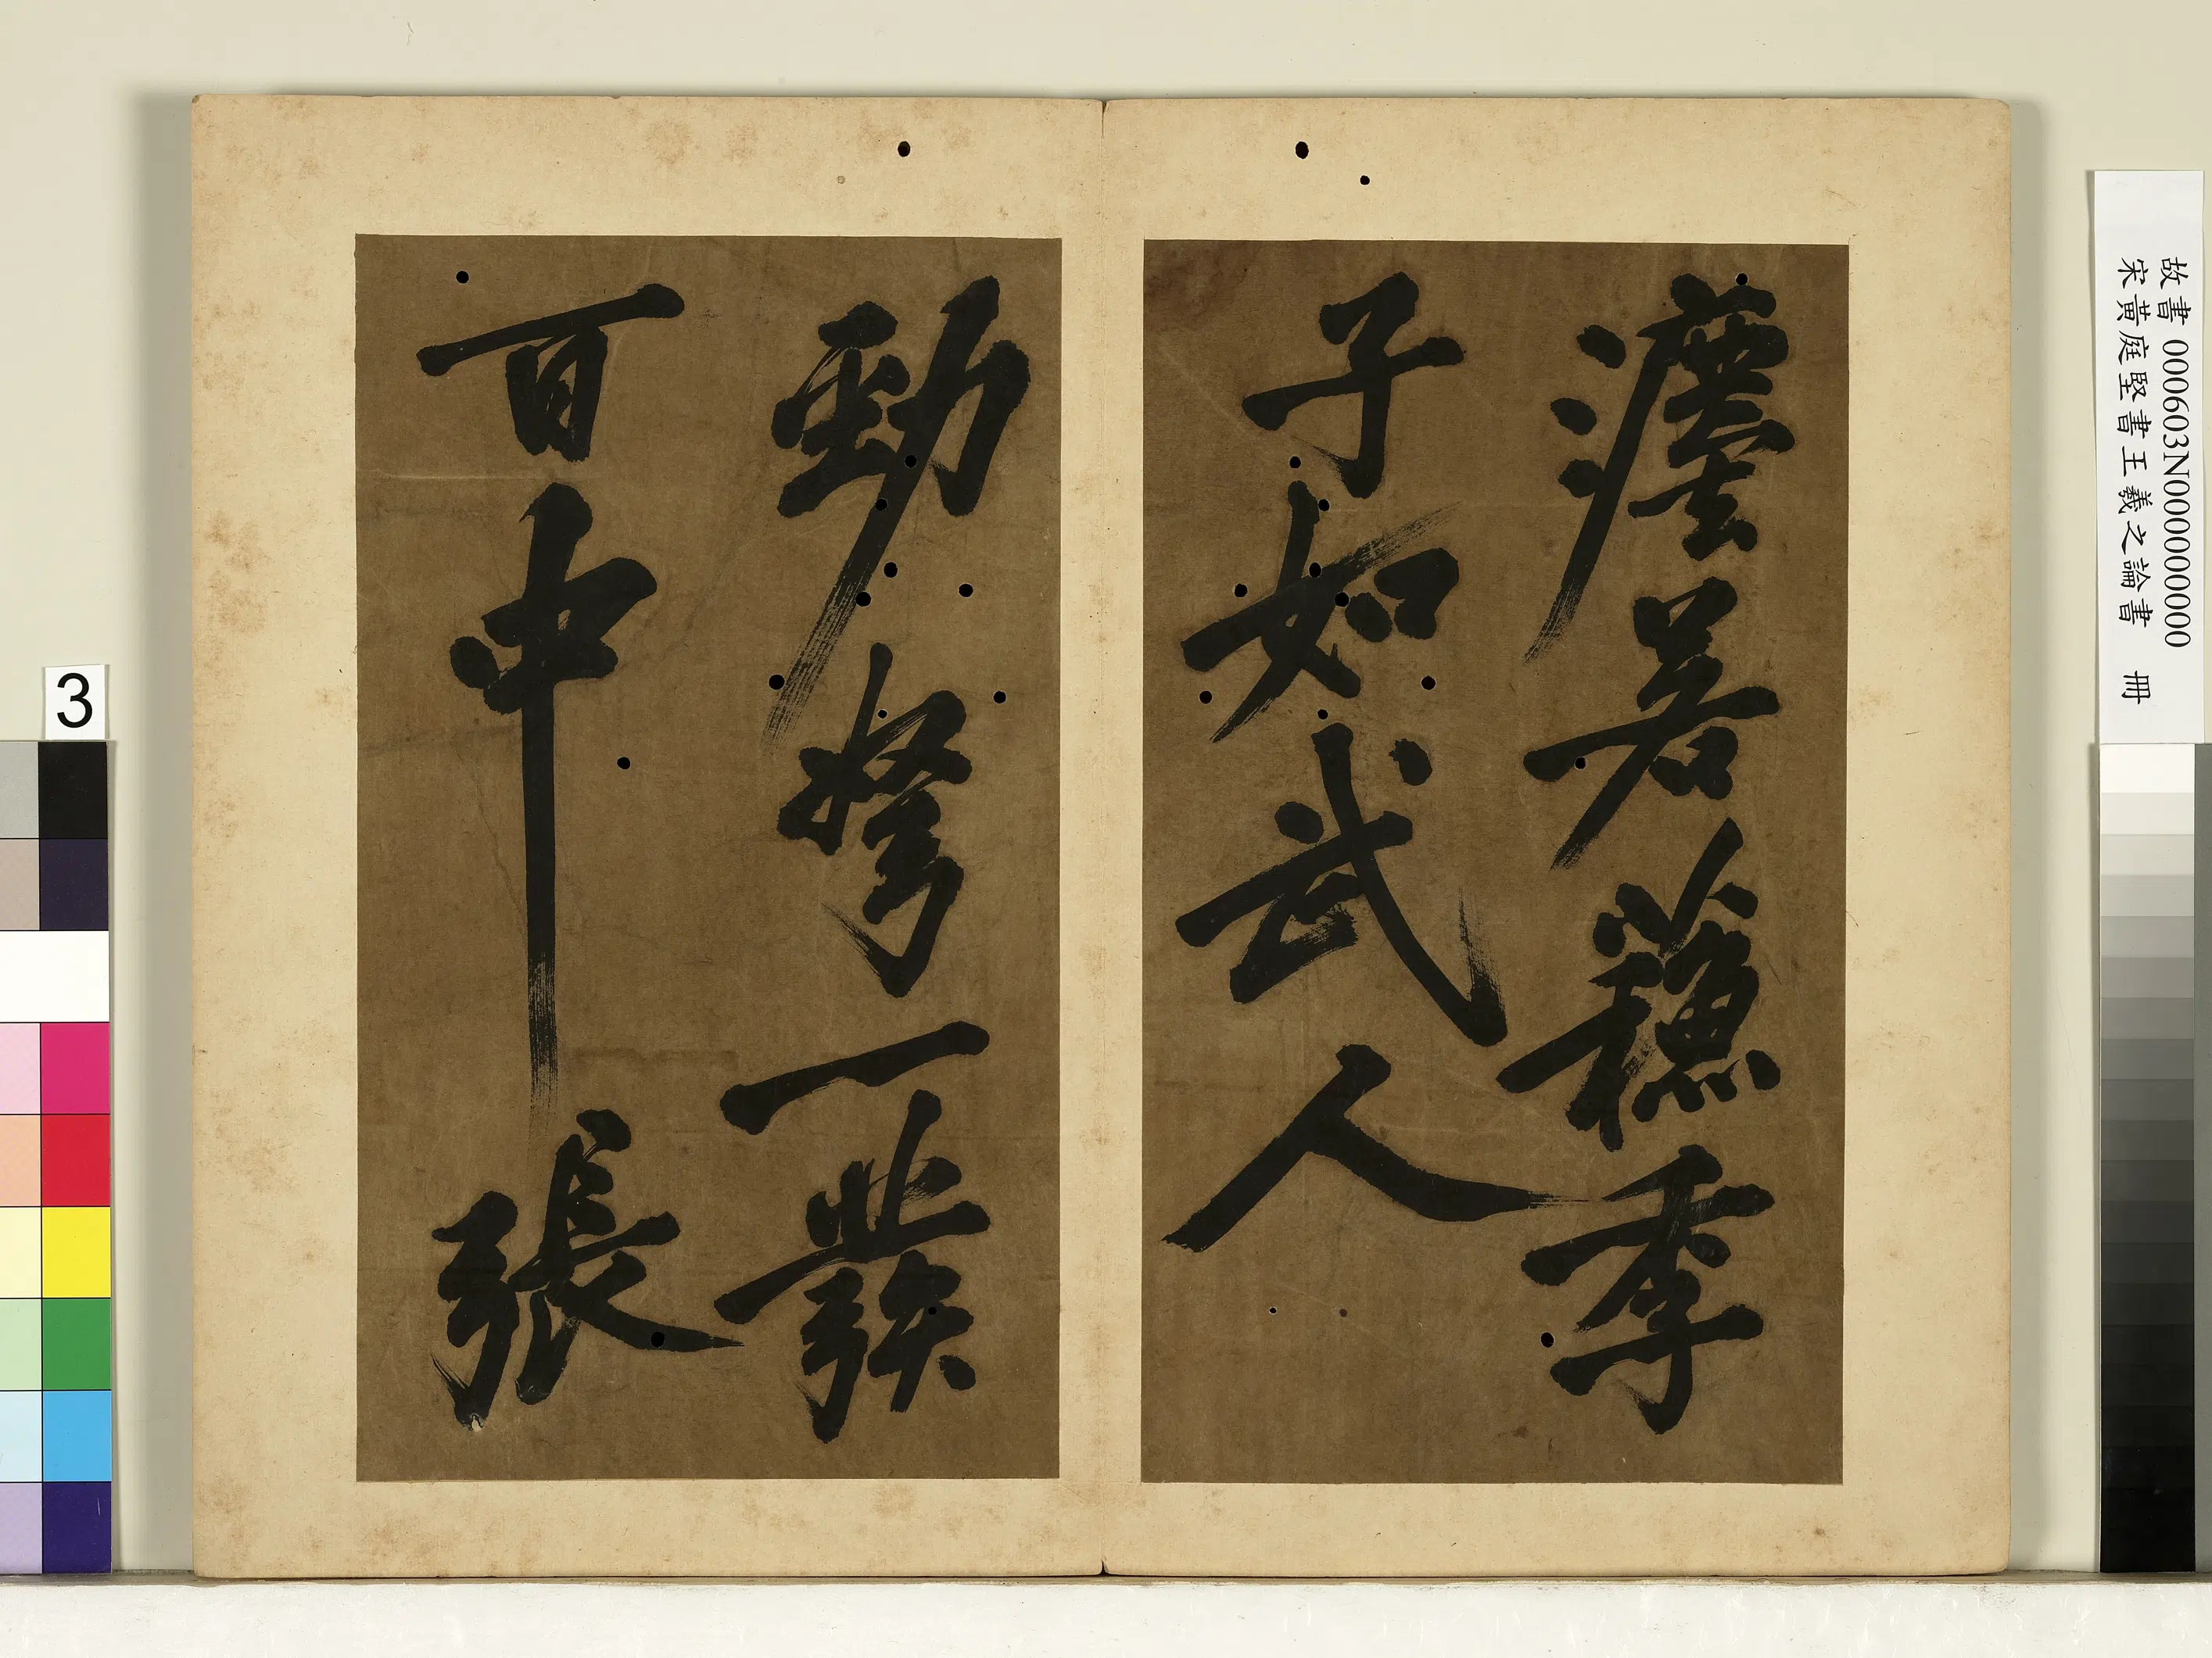 灋若蘓季
子如武人
勁弩一發
百中 張
故書 000603N000000000
宋黃庭堅書王羲之論書 冊
3